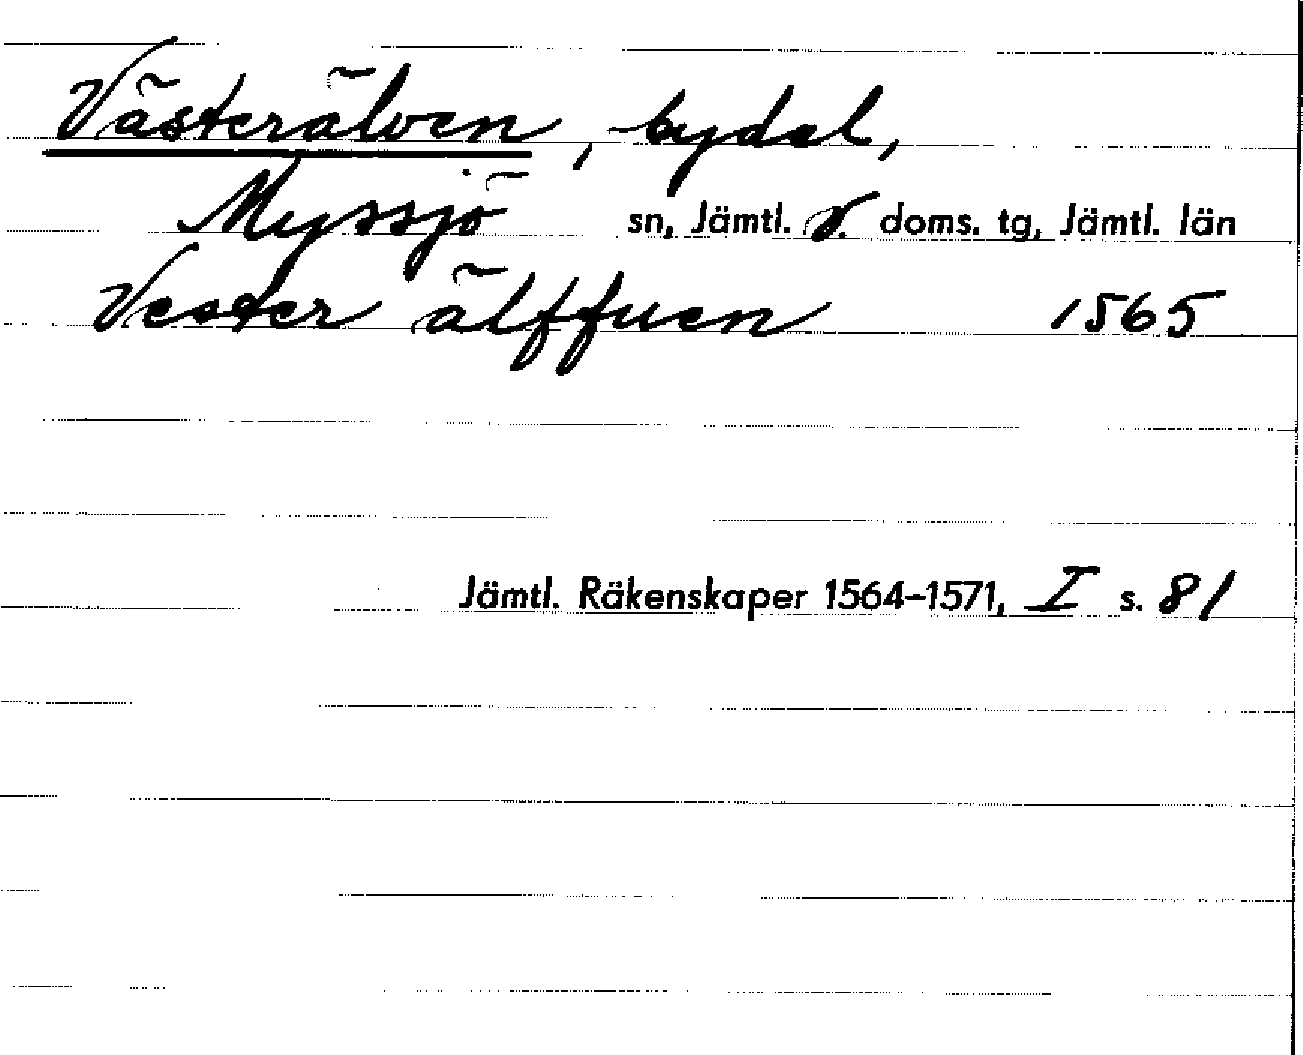 Västerälven, bydel,
Myssjö sn, Jämtl. V. doms. tg, Jämtl. län
Vester älffuen 1565
Jämtl. Räkenskaper 1564–1571, I s. 81